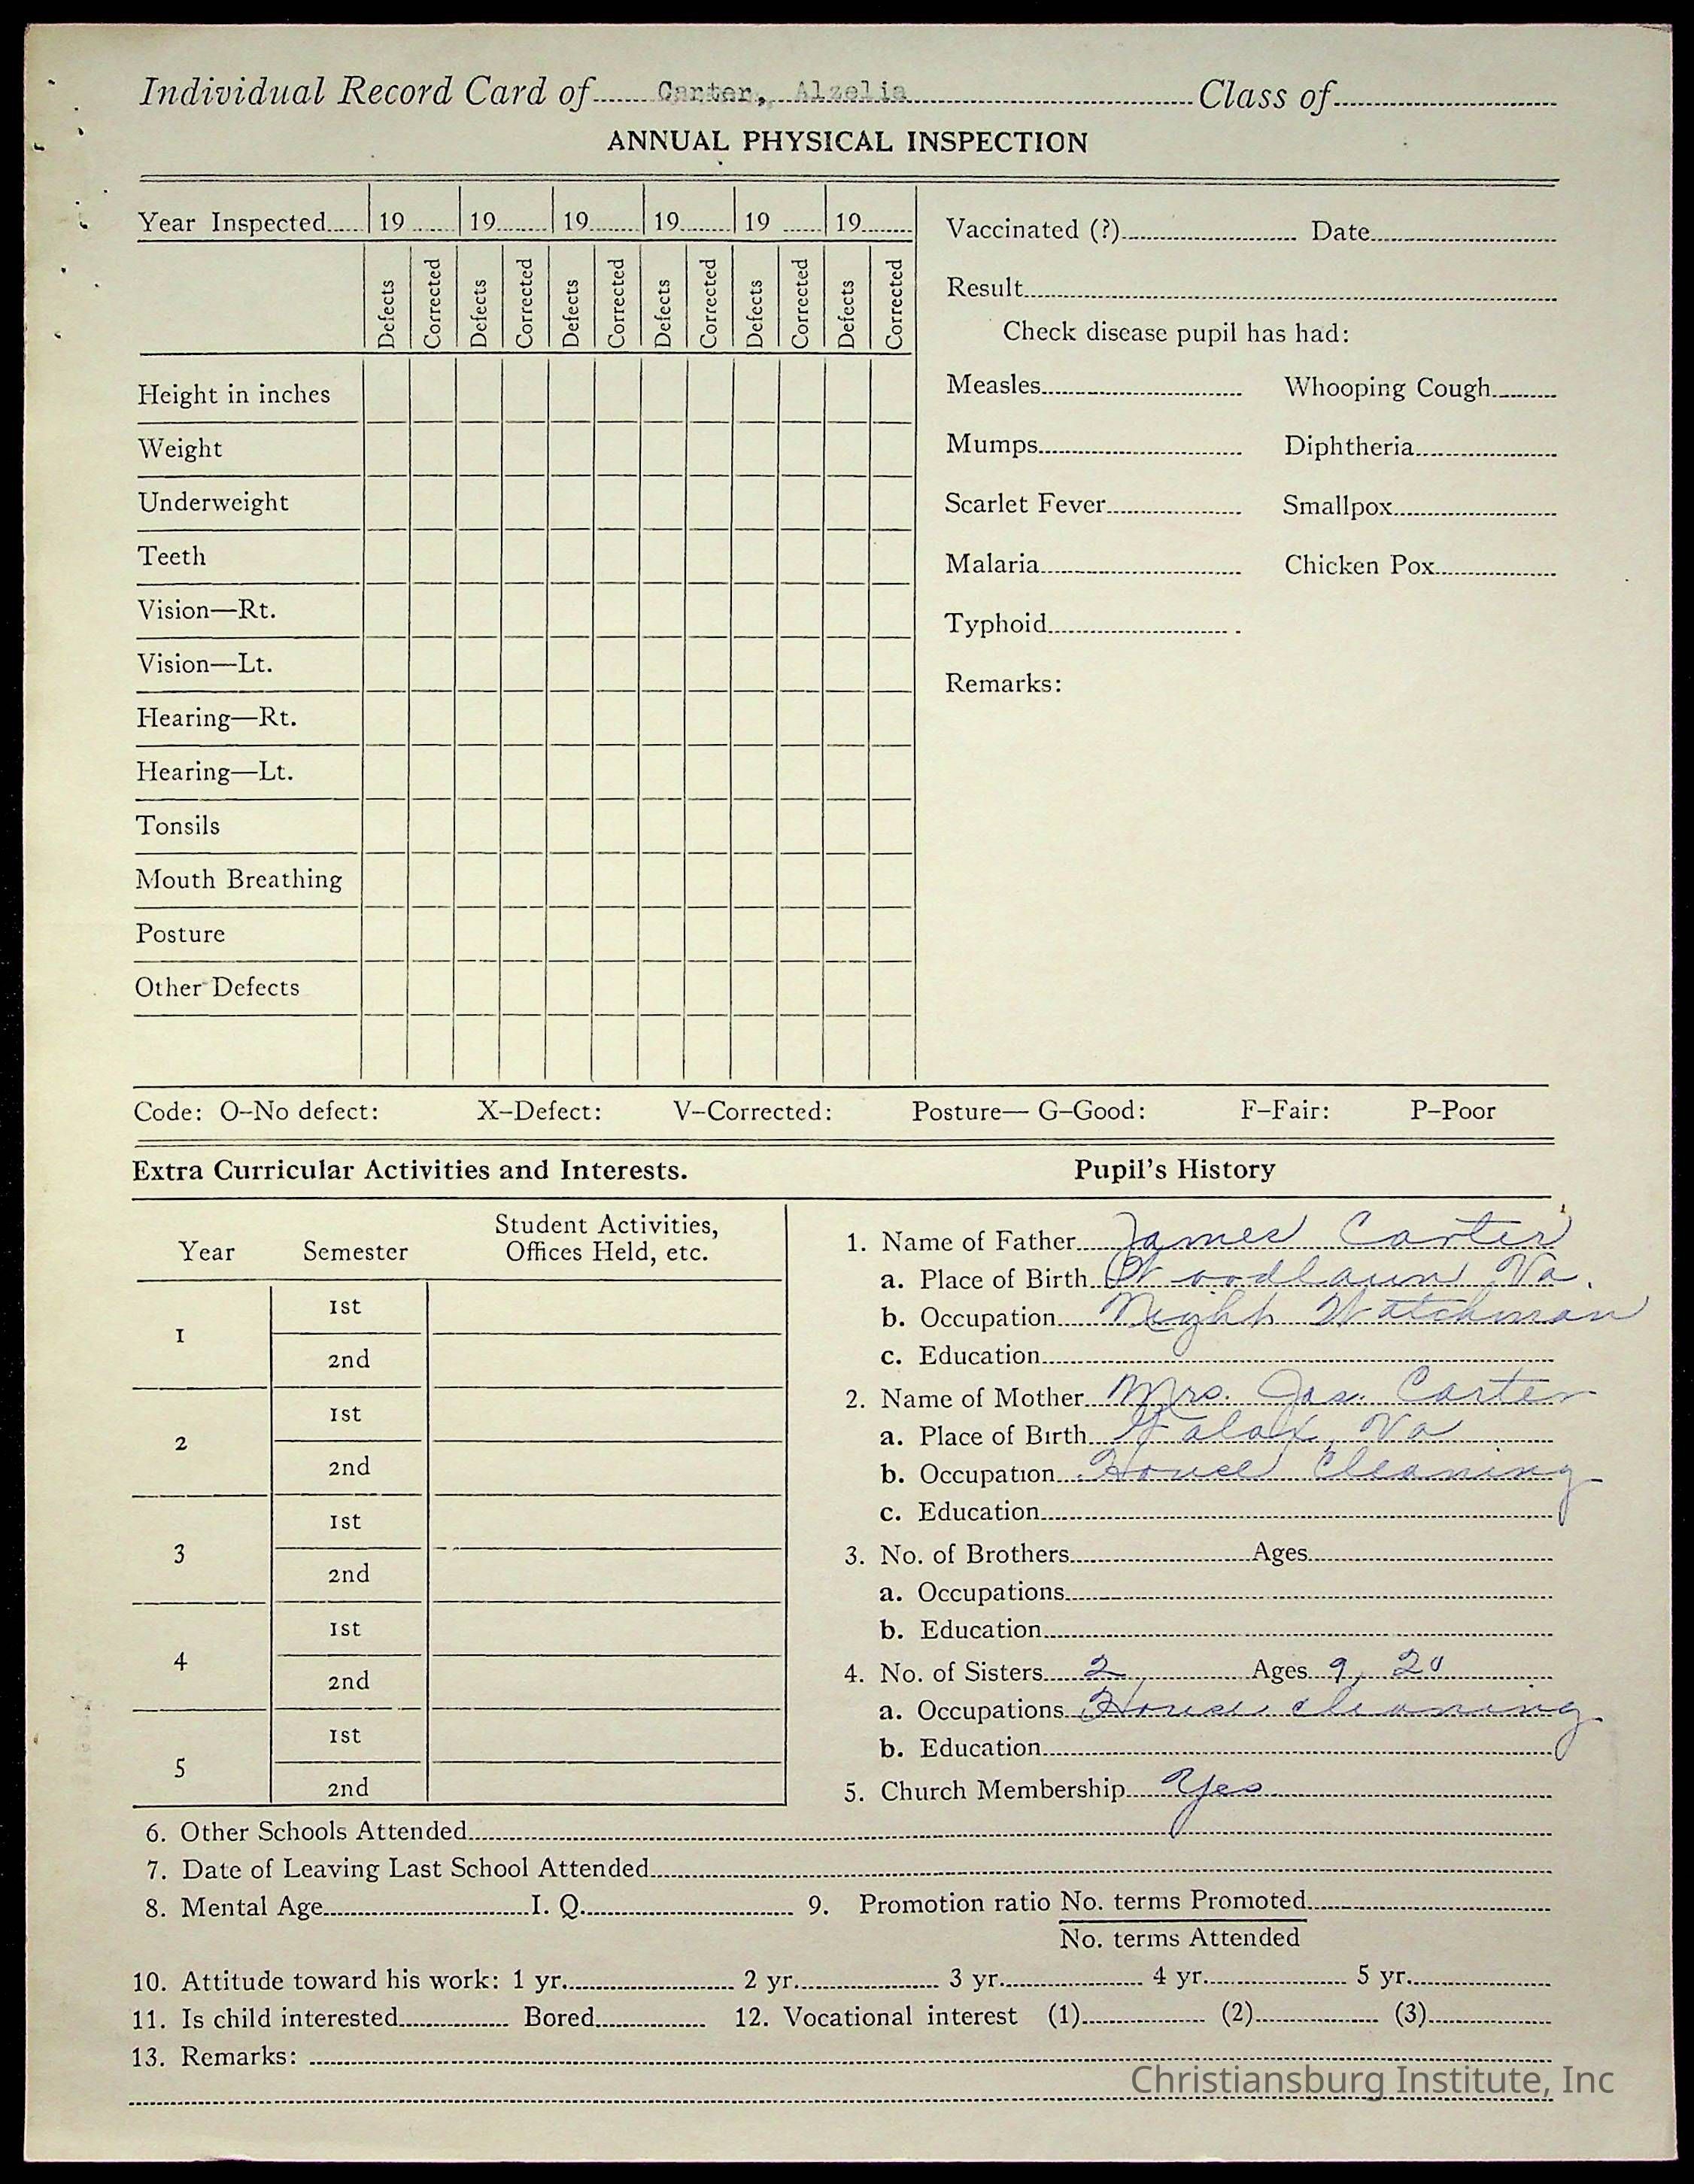 Individual Record Card of Carter, Alzelia Class of
ANNUAL PHYSICAL INSPECTION
Year Inspected 19 19 19 19 19 19
Defects Corrected Defects Corrected Defects Corrected Defects Corrected Defects Corrected Defects Corrected
Height in inches
Weight
Underweight
Teeth
Vision—Rt.
Vision—Lt.
Hearing—Rt.
Hearing—Lt.
Tonsils
Mouth Breathing
Posture
Other Defects
Vaccinated (?) Date
Result
Check disease pupil has had:
Measles Whooping Cough
Mumps Diphtheria
Scarlet Fever Smallpox
Malaria Chicken Pox
Typhoid
Remarks:
Code: O–No defect: X–Defect: V–Corrected: Posture— G–Good: F–Fair: P–Poor
Extra Curricular Activities and Interests.
Year Semester Student Activities,
Offices Held, etc.
1 1st
2nd
2 1st
2nd
3 1st
2nd
4 1st
2nd
5 1st
2nd
Pupil's History
1. Name of Father James Carter
a. Place of Birth Woodlawn Va.
b. Occupation Night Watchman
c. Education
2. Name of Mother Mrs. Jas. Carter
a. Place of Birth Galax, Va
b. Occupation House Cleaning
c. Education
3. No. of Brothers Ages
a. Occupations
b. Education
4. No. of Sisters 2 Ages 9, 20
a. Occupations House cleaning
b. Education
5. Church Membership Yes
6. Other Schools Attended
7. Date of Leaving Last School Attended
8. Mental Age I. Q. 9. Promotion ratio No. terms Promoted
No. terms Attended
10. Attitude toward his work: 1 yr. 2 yr. 3 yr. 4 yr. 5 yr.
11. Is child interested Bored 12. Vocational interest (1) (2) (3)
13. Remarks:
Christiansburg Institute, Inc